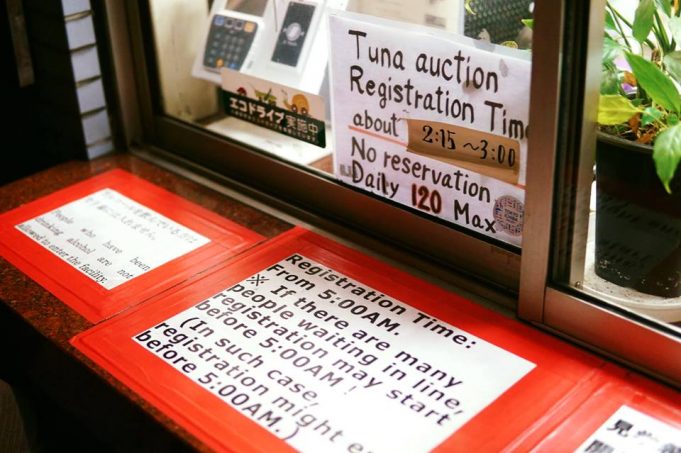 Tuna auction
Registration Time
about 2:15~3:00
No reservation
Daily 120 Max
エコドライブ実施中
People who have been
drinking alcohol are not
allowed to enter the facility.
Registration Time:
From 5:00AM.
※ If there are many
People waiting in line,
registration may start
before 5:00AM !
(In such case,
registration might e
before 5:00AM.)
見